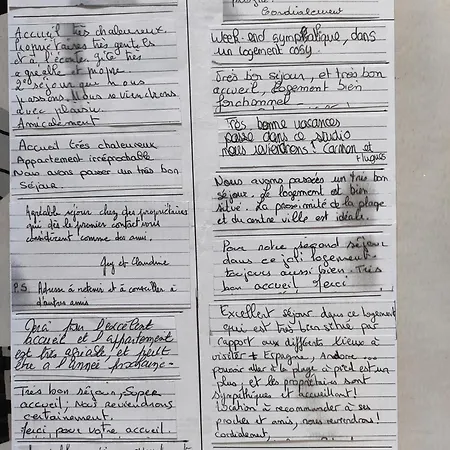 Accueil très chaleureux.
Propriétaires très gentils
et à l'écoute. gîte très
agréable et propre.
2ème séjour que nous
passons. Nous reviendrons
avec plaisir.
Amicalement
Accueil très chaleureux
Appartement irréprochable.
Nous avons passer un très bon
Séjour.
Agréable séjour chez des propriétaires
qui dès le premier contact vous
considèrent comme des amis.
Guy et Claudine
P.S. Adresse à retenir et à conseiller à
d'autres amis
Merci pour l'excellent
accueil et l'appartement
est très agréable et peut
être à l'année prochaine -
Très bon séjour, Super
accueil, Nous reviendrons
certainement.
Merci pour votre accueil.
Cordialement
Week-end sympathique, dans
un logement cosy.
Très bon séjour, et très bon
accueil, logement bien
fonctionnel
Très bonne vacances
passe dans ce studio
nous reviendrons! Carmon et
Hugues
Nous avons passés un très bon
séjour. Le logement est bien
situé. La proximité de la plage
et du centre ville est idéale.
Pour notre second séjour
dans ce joli logement
toujours aussi bien. Très
bon accueil. Merci
Excellent séjour dans ce logement
qui est très bien situé par
rapport aux différents lieux à
visiter + Espagne, Andorre ...
pouvoir aller à la plage à pied est un
plus, et les propriétaires sont
sympathiques et accueillant!
Location à recommander à ses
proches et amis, nous reviendrons!
Cordialement,